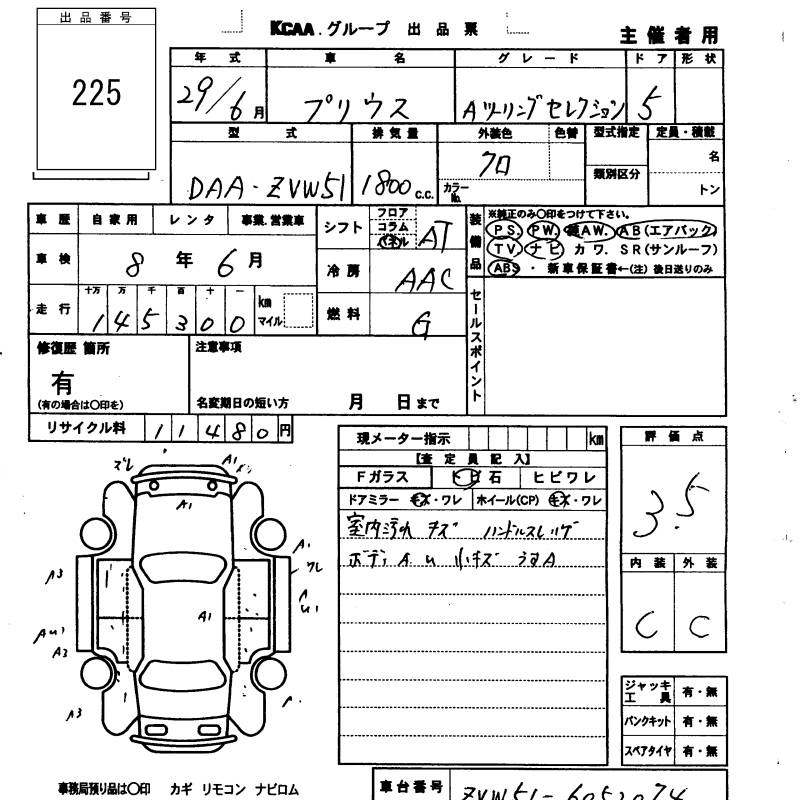 出品番号
225
KCAA.グループ 出品票
主催者用
年式 車名 グレード ドア 形状
29/6月 プリウス Aツーリングセレクション 5
型式 排気量 外装色 色替 型式指定 定員・積載
DAA-ZVW51 1800c.c. クロ 名
カラーNo. 類別区分 トン
車歴 自家用 レンタ 事業.営業車
車検 8年6月
走行 十万 万 千 百 十 一
145300 km マイル
シフト フロア コラム パネル AT
冷房 AAC
燃料 G
装備品
※純正のみ〇印をつけて下さい。
PS. PW. AW. AB(エアバック)
TV ナビ カワ. SR(サンルーフ)
ABS ・ 新車保証書←(注)後日送りのみ
セールスポイント
修復歴 箇所
有
(有の場合は〇印を)
注意事項
名変期日の短い方 月 日まで
リサイクル料 11480円
現メーター指示 km
【査定員記入】
Fガラス トビ石 ヒビワレ
ドアミラー キズ・ワレ ホイール(CP) キズ・ワレ
室内汚れ キズ ハンドルスレ
ボディ A u 小キズ うすA
評価点
3.5
内装 外装
C C
ズレ A1
A1
A1
A3 ワレ
A1
A3
A3
ジャッキ工具 有・無
パンクキット 有・無
スペアタイヤ 有・無
事務局預り品は〇印 カギ リモコン ナビロム
車台番号 ZVW51-6052074